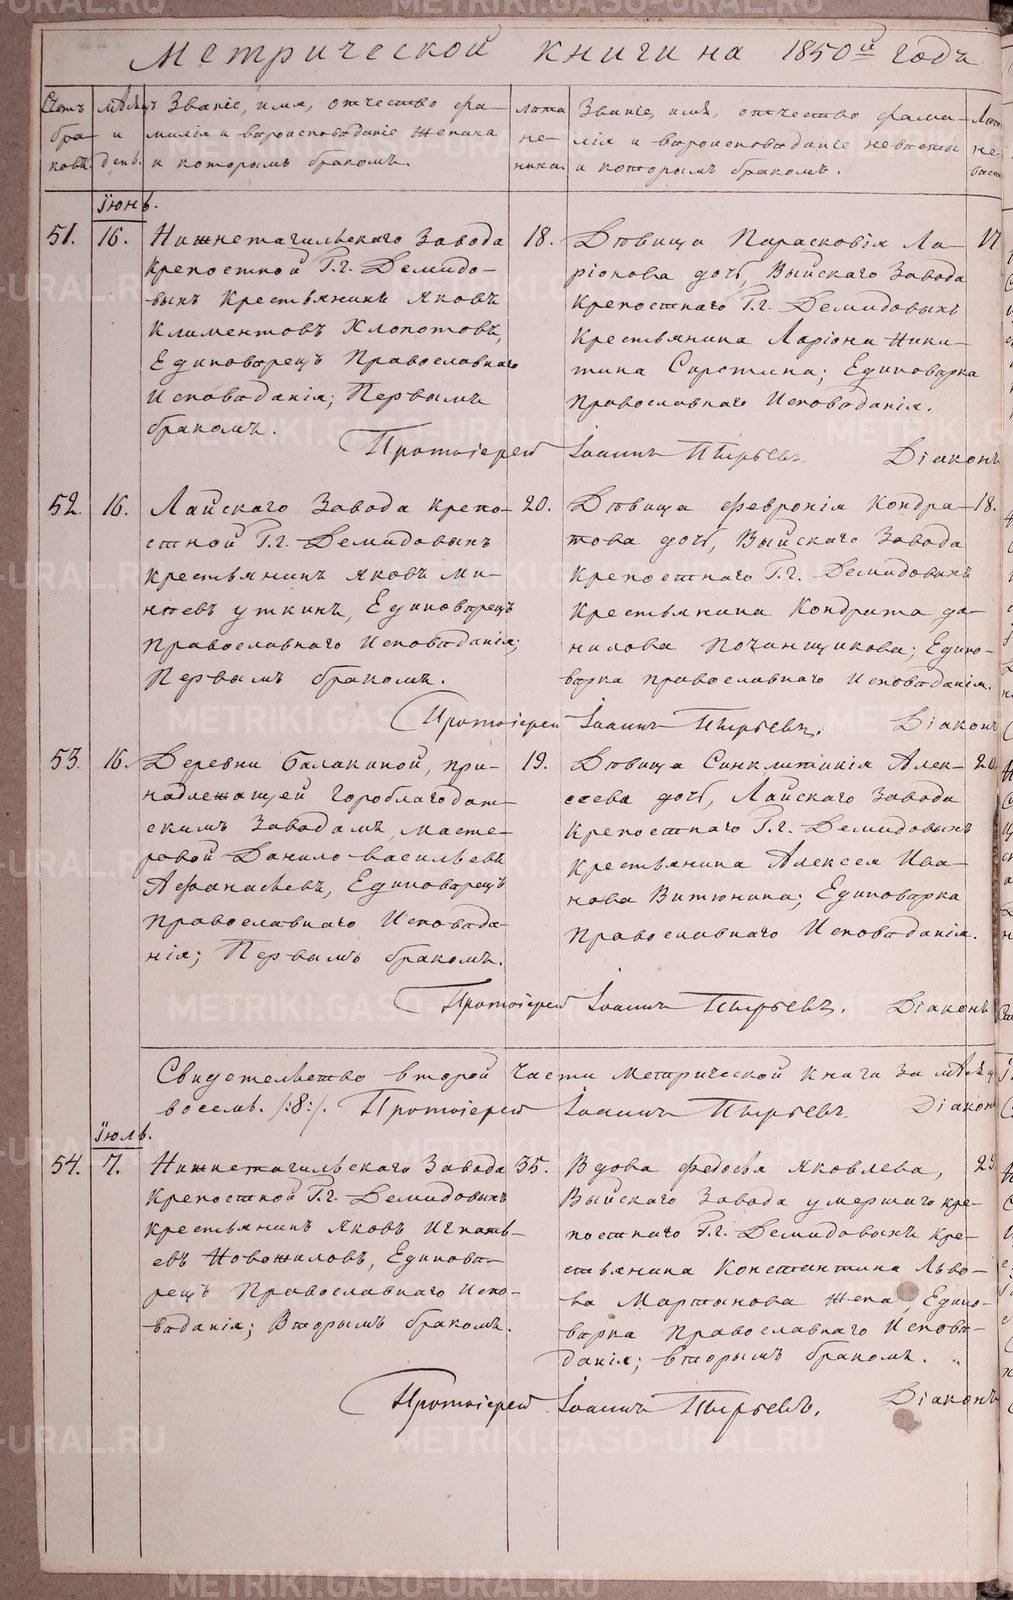 Метрической книги на 1850й годъ
Счетъ браковъ.
Мѣсяцъ и день.
Званіе, имя, отчество, фамилія и вѣроисповѣданіе жениха и которымъ бракомъ.
Лѣта жениха.
Званіе, имя, отчество, фамилія и вѣроисповѣданіе невѣсты и которымъ бракомъ.
Іюнь.
51. 16.
Нижнетагильскаго Завода
крепостной Г.г. Демидо-
выхъ крестьянинъ Яковъ
Климентовъ Хлопотовъ,
Единоверецъ Православнаго
Исповѣданія; Первымъ
бракомъ.
18.
Дѣвица Парасковія Ла-
ріонова дочь, Выйскаго Завода
крепостнаго Г.г. Демидовыхъ
крестьянина Ларіона Ники-
тина Сиротина; Единоверка
православнаго Исповѣданія.
17
Протоіерей Іоаннъ Пырьевъ. Діаконъ
52. 16.
Лайскаго Завода крепо-
стной Г.г. Демидовыхъ
крестьянинъ Яковъ Ми-
нѣевъ Уткинъ, Единоверецъ
православнаго Исповѣданія;
Первымъ бракомъ.
20.
Дѣвица Февронія Кондра-
това дочь, Выйскаго Завода
крепостнаго Г.г. Демидовыхъ
крестьянина Кондрата Да-
нилова Починщикова; Едино-
верка православнаго Исповѣданія.
18.
Протоіерей Іоаннъ Пырьевъ. Діаконъ
53. 16.
Деревни Балакиной, при-
надлежащей Гороблагодат-
скимъ Заводамъ, масте-
ровой Данило Васильевъ
Афанасьевъ, Единоверецъ
православнаго Исповѣда-
нія; Первымъ бракомъ.
19.
Дѣвица Синклитикія Алек-
сѣева дочь, Лайскаго Завода
крепостнаго Г.г. Демидовыхъ
крестьянина Алексея Ива-
нова Витюнина; Единоверка
Православнаго Исповѣданія.
20
Протоіерей Іоаннъ Пырьевъ. Діаконъ
Свидетельство второй части Метрической книги за мѣсяц
восемь. /:8:/. Протоіерей Іоаннъ Пырьевъ. Діакон
Іюль.
54. 7.
Нижнетагильскаго Завода
крепостной Г.г. Демидовыхъ
крестьянинъ Яковъ Игнать-
евъ Новожиловъ, Единове-
рецъ Православнаго Испо-
вѣданія; Вторымъ бракомъ.
35.
Вдова Федосья Яковлева,
Выйскаго Завода умершаго кре-
постнаго Г.г. Демидовыхъ кре-
стьянина Константина Льво-
ва Мартынова жена, Едино-
верка православнаго Исповѣ-
данія; вторымъ бракомъ.
Протоіерей Іоаннъ Пырьевъ. Діаконъ
METRIKI.GASO-URAL.RU